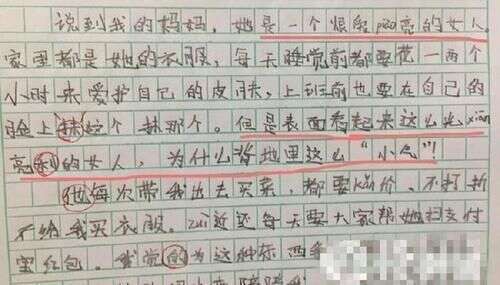 说到我的妈妈，她是一个很会piào亮的女人。
家里都是她的衣服，每天睡觉前都要花一两个
小时来爱护自己的皮肤，上班前也要在自己的
脸上抹这个抹那个。但是表面看起来这么光xiān
亮利的女人，为什么背地里这么“小气”！
她每次带我出去买菜，都要kǎn价，不打折
不给我买衣服。zuì近还每天要大家帮她扫支付
宝红包。我觉的为这种东西